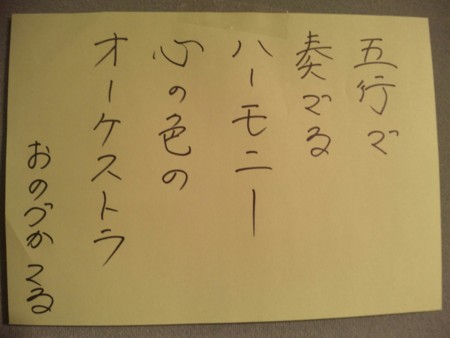 五行で
奏でる
ハーモニー
心の色の
オーケストラ
おのづかつる